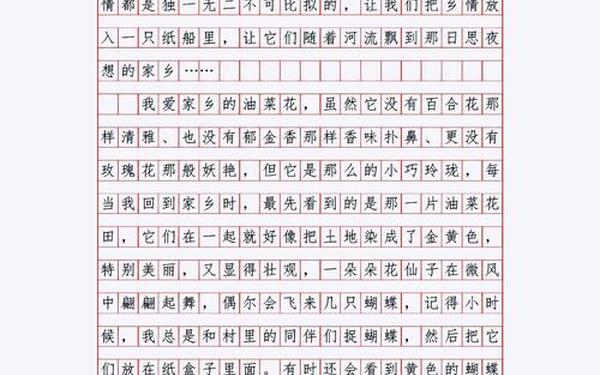 情都是独一无二不可比拟的，让我们把乡情放
入一只纸船里，让它们随着河流飘到那日思夜
想的家乡……
我爱家乡的油菜花，虽然它没有百合花那
样清雅、也没有郁金香那样香味扑鼻、更没有
玫瑰花那般妖艳，但它是那么的小巧玲珑，每
当我回到家乡时，最先看到的是那一片油菜花
田，它们在一起就好像把土地染成了金黄色，
特别美丽，又显得壮观，一朵朵花仙子在微风
中翩翩起舞，偶尔会飞来几只蝴蝶，记得小时
候，我总是和村里的同伴们捉蝴蝶，然后把它
们放在纸盒子里面。有时还会看到黄色的蝴蝶